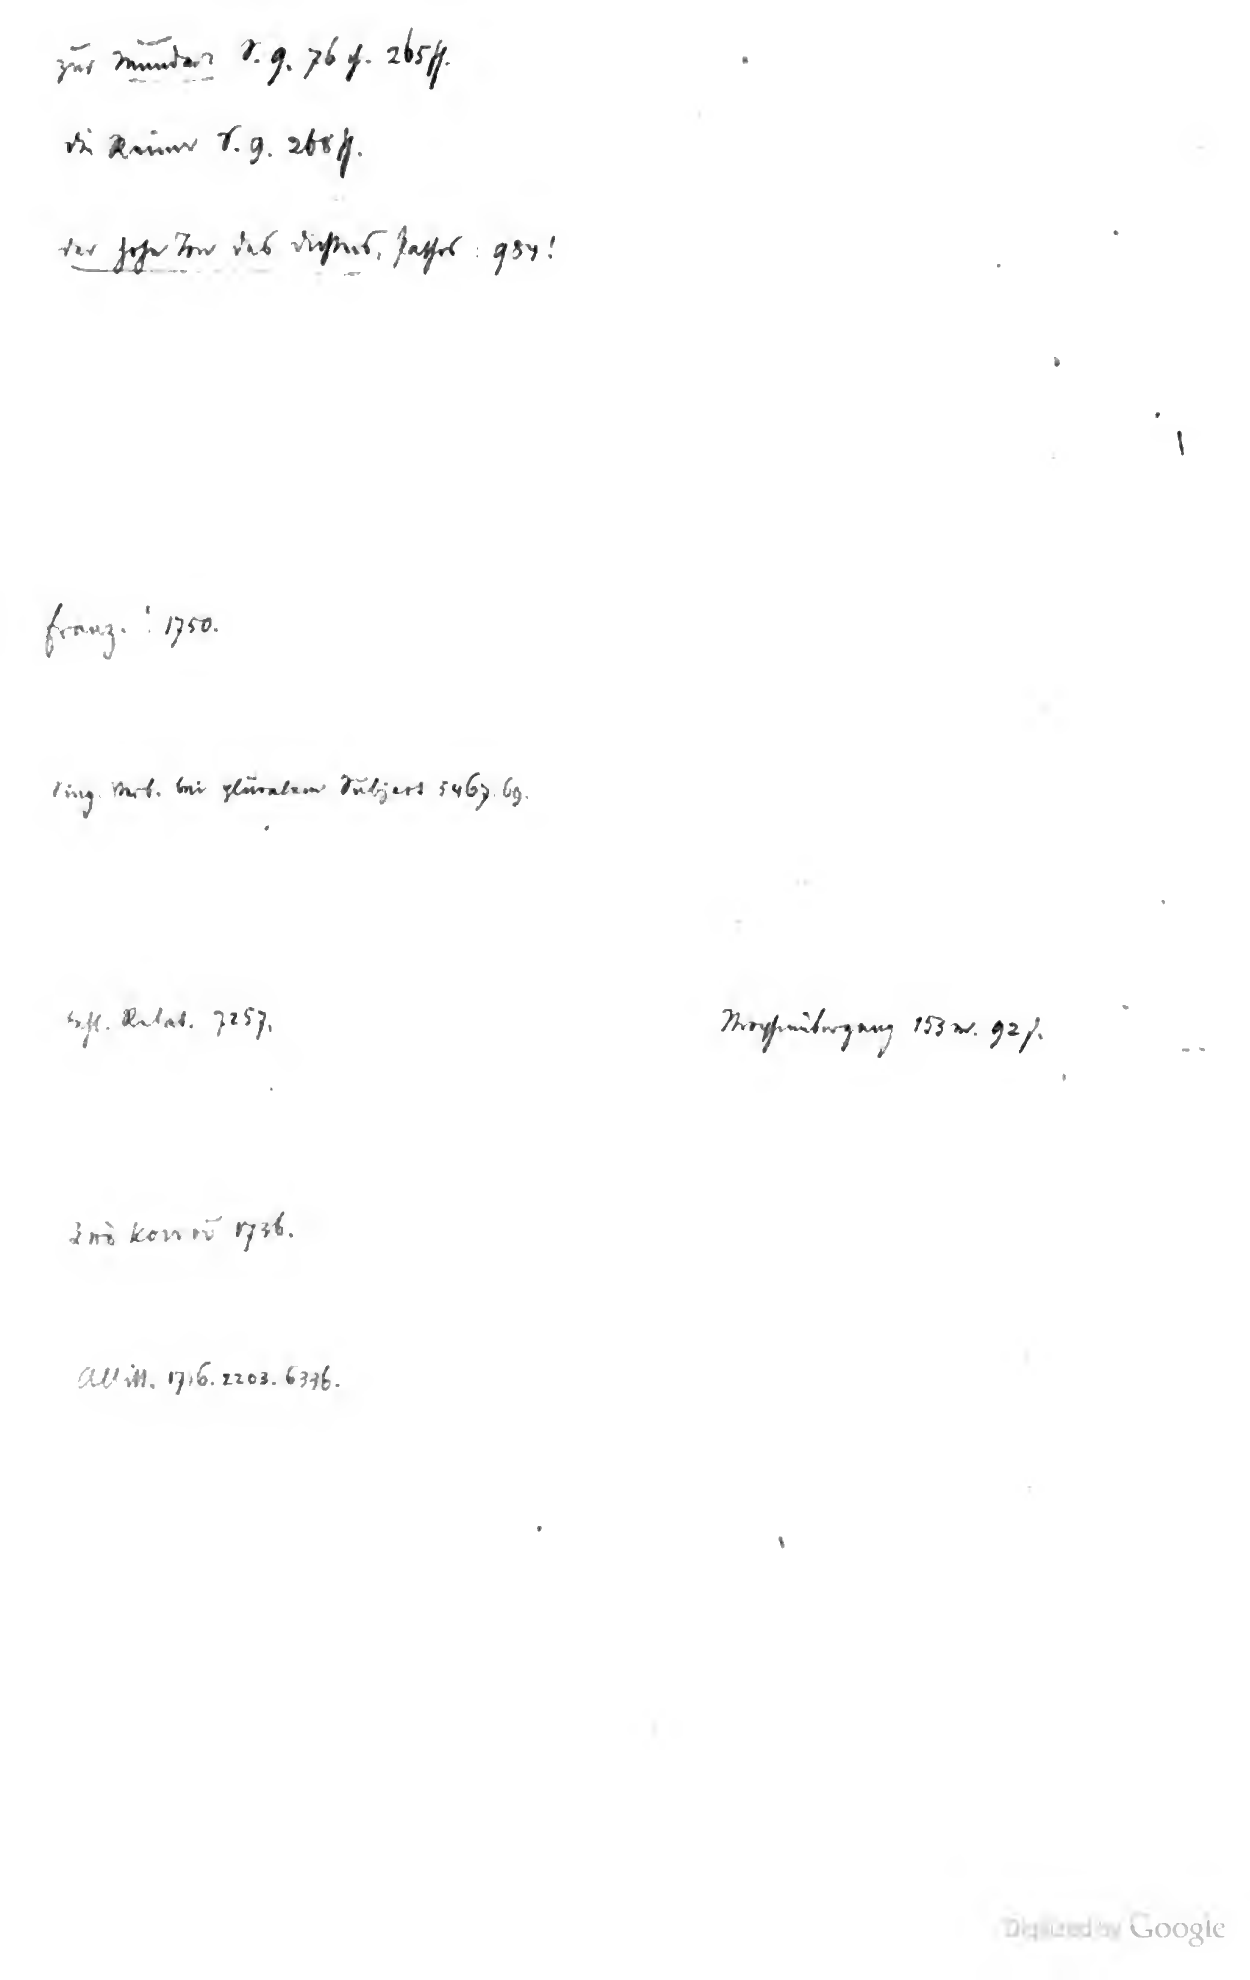 zur Mundart S. 9. 76 f. 265 ff.
die Reime S. 9. 268 ff.
der hohe Ton des Pathos : 934!
franz. : 1750.
Sing. Verb. bei pluralem Subject 5467. 69.
Relat. 7257.
Strophenübergang 153 u. 92 f.
1736.
Allitt. 1716. 2203. 6336.
Digitized by Google